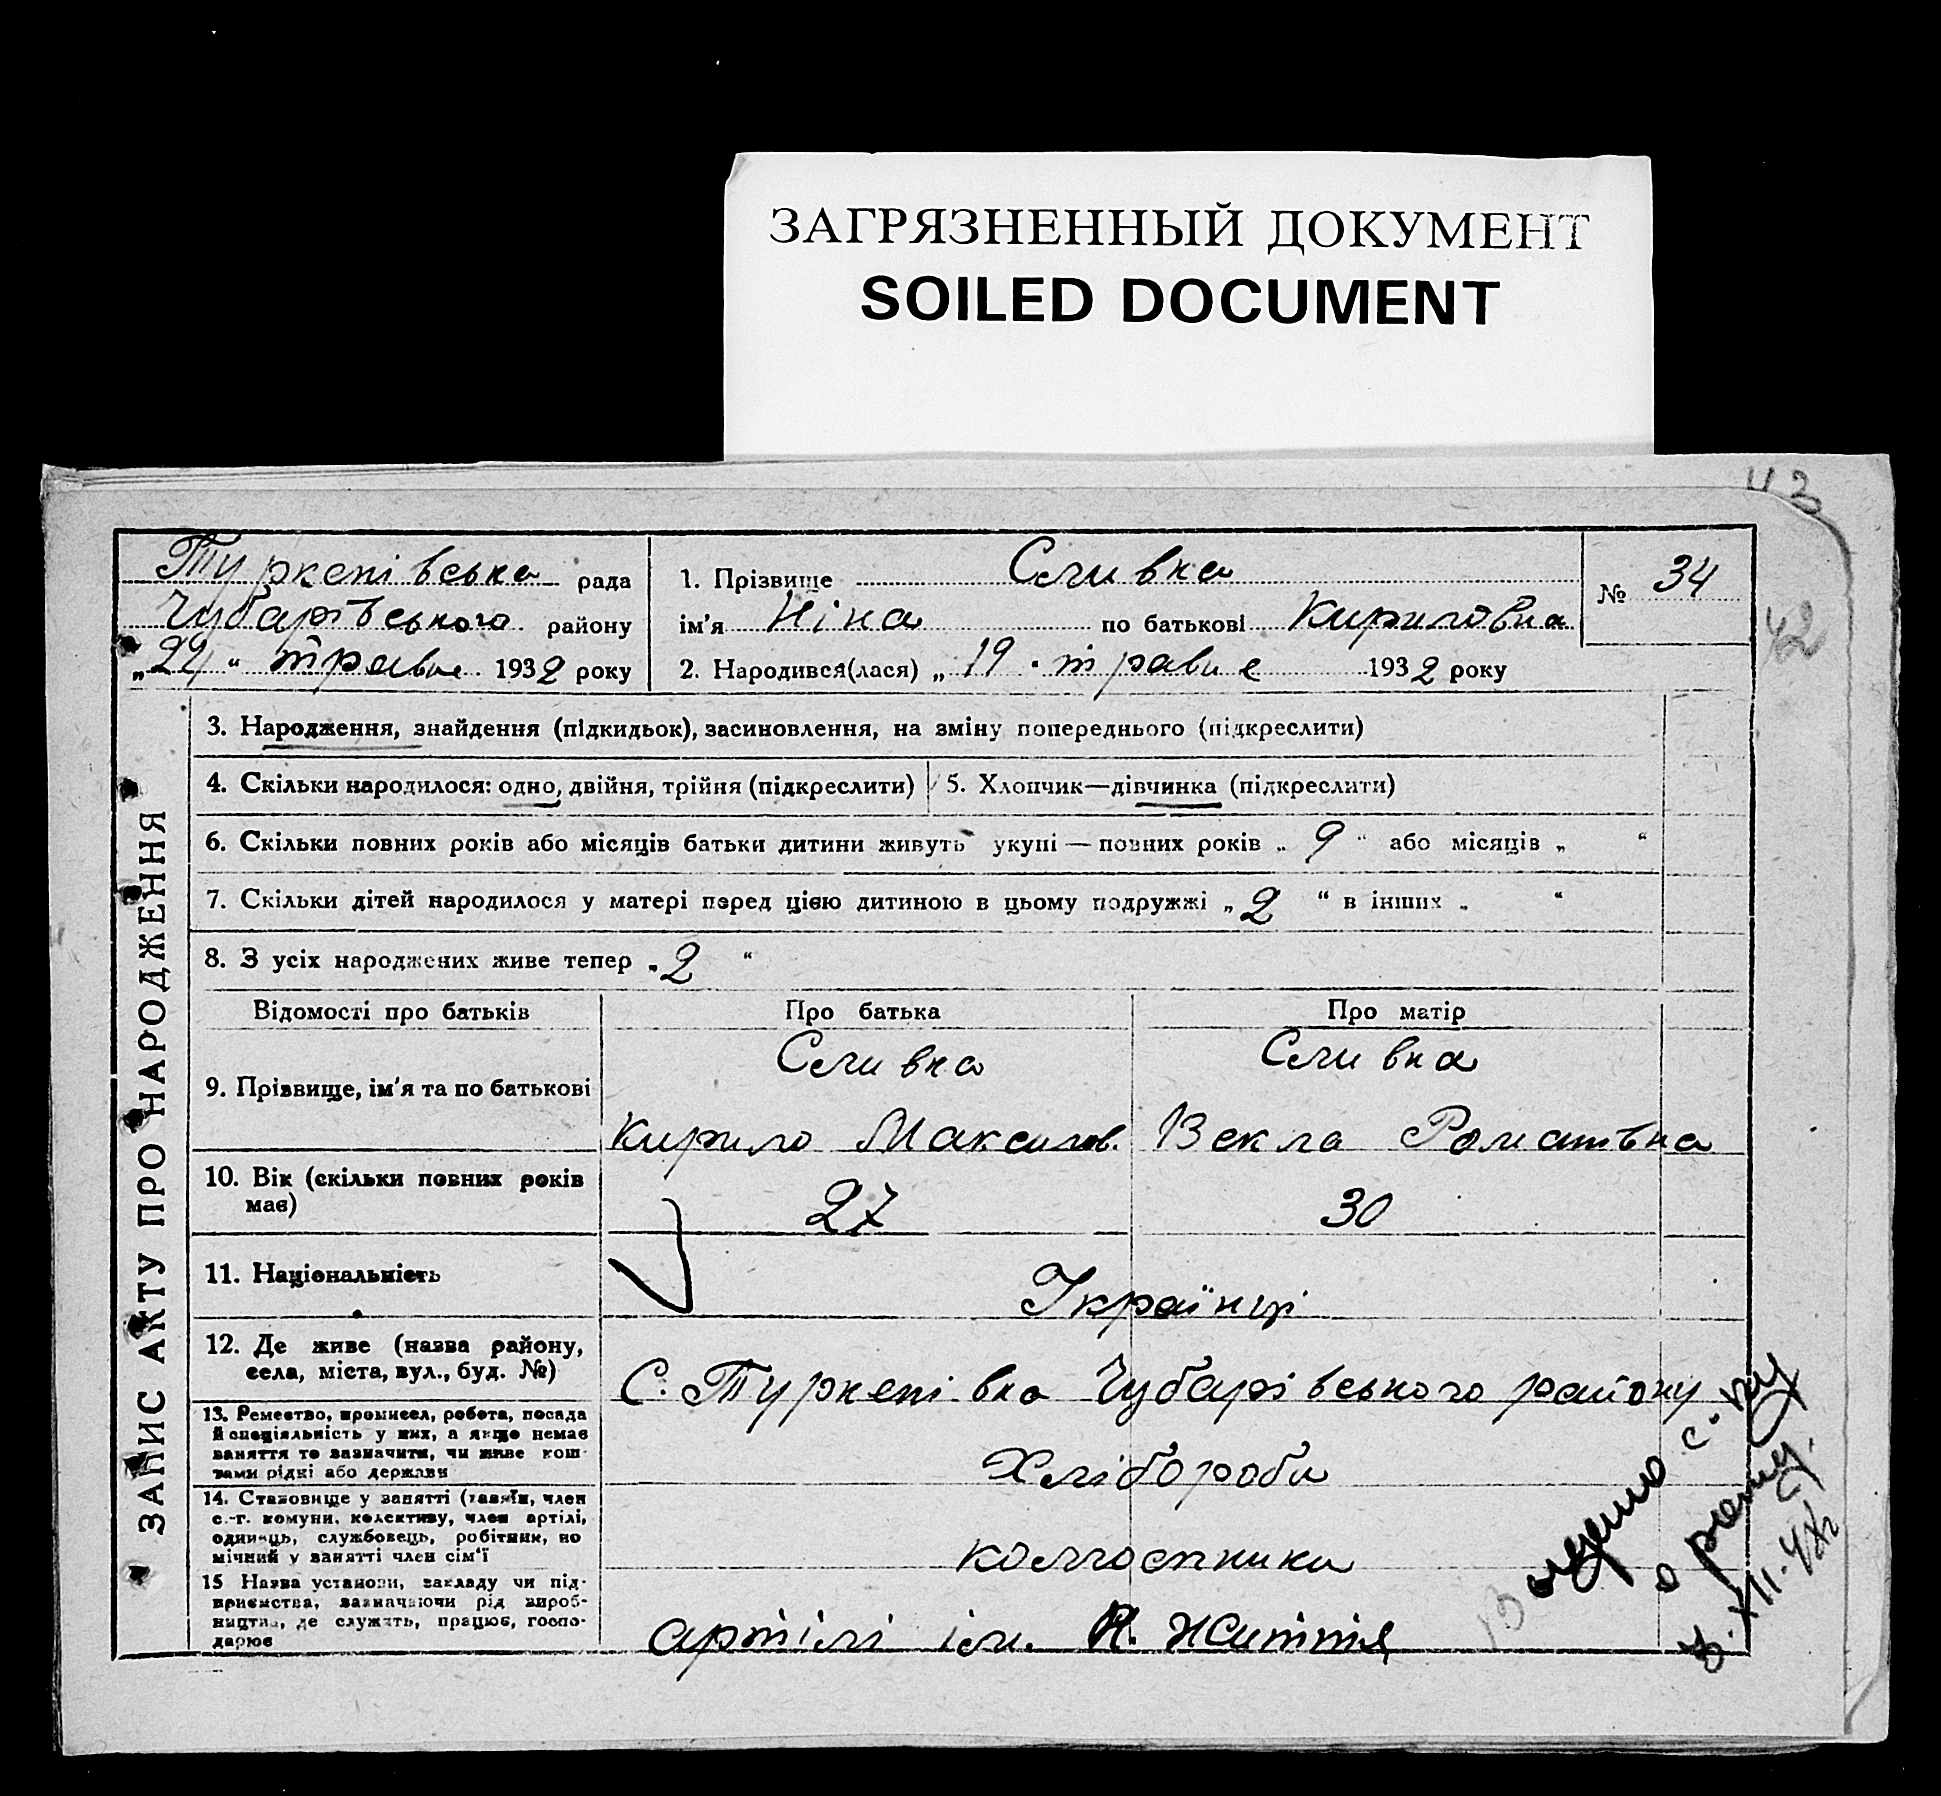 ЗАГРЯЗНЕННЫЙ ДОКУМЕНТ
SOILED DOCUMENT
43
42
Туркенівська рада
Чубарівського району
„22“ травня 1932 року
1. Прізвище Сливка
ім'я Ніна по батькові Кириловна
2. Народився(лася) „19 травня 1932 року
№ 34
ЗАПИС АКТУ ПРО НАРОДЖЕННЯ
3. Народження, знайдення (підкидьок), засиновлення, на зміну попереднього (підкреслити)
4. Скільки народилося: одно, двійня, трійня (підкреслити)
5. Хлопчик—дівчинка (підкреслити)
6. Скільки повних років або місяців батьки дитини живуть укупі — повних років „ 9 “ або місяців „ “
7. Скільки дітей народилося у матері перед цією дитиною в цьому подружжі „ 2 “ в інших „ “
8. З усіх народжених живе тепер „ 2 “
Відомості про батьків Про батька Про матір
9. Прізвище, ім'я та по батькові
Сливка Сливка
Кирило Максимов. Векла Романівна
10. Вік (скільки повних років має)
27 30
11. Національність
Українці
12. Де живе (назва району,
села, міста, вул., буд. №)
С. Туркенівка Чубарівського району
13. Ремество, промисел, робота, посада
й спеціяльність у них, а якщо немає
заняття то зазначити, чи живе кош-
тами рідні або держави
Хлібороби
14. Становище у занятті (хазяїн, член
с.-г. комуни, колективу, член артілі,
одинець, службовець, робітник, по
мічний у занятті член сім'ї
колгоспники
15 Назва установи, закладу чи під-
приємства, зазначаючи рід вироб-
ництва, де служить, працює, госпо-
дарює
артілі ім. Н. Життя